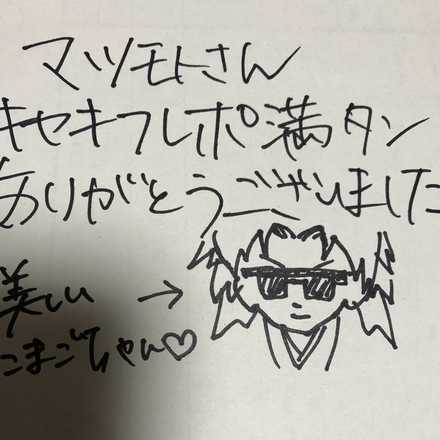 マツモトさん
キセキフレポ満タン
ありがとうございました
美しい →
こまごちゃん♡